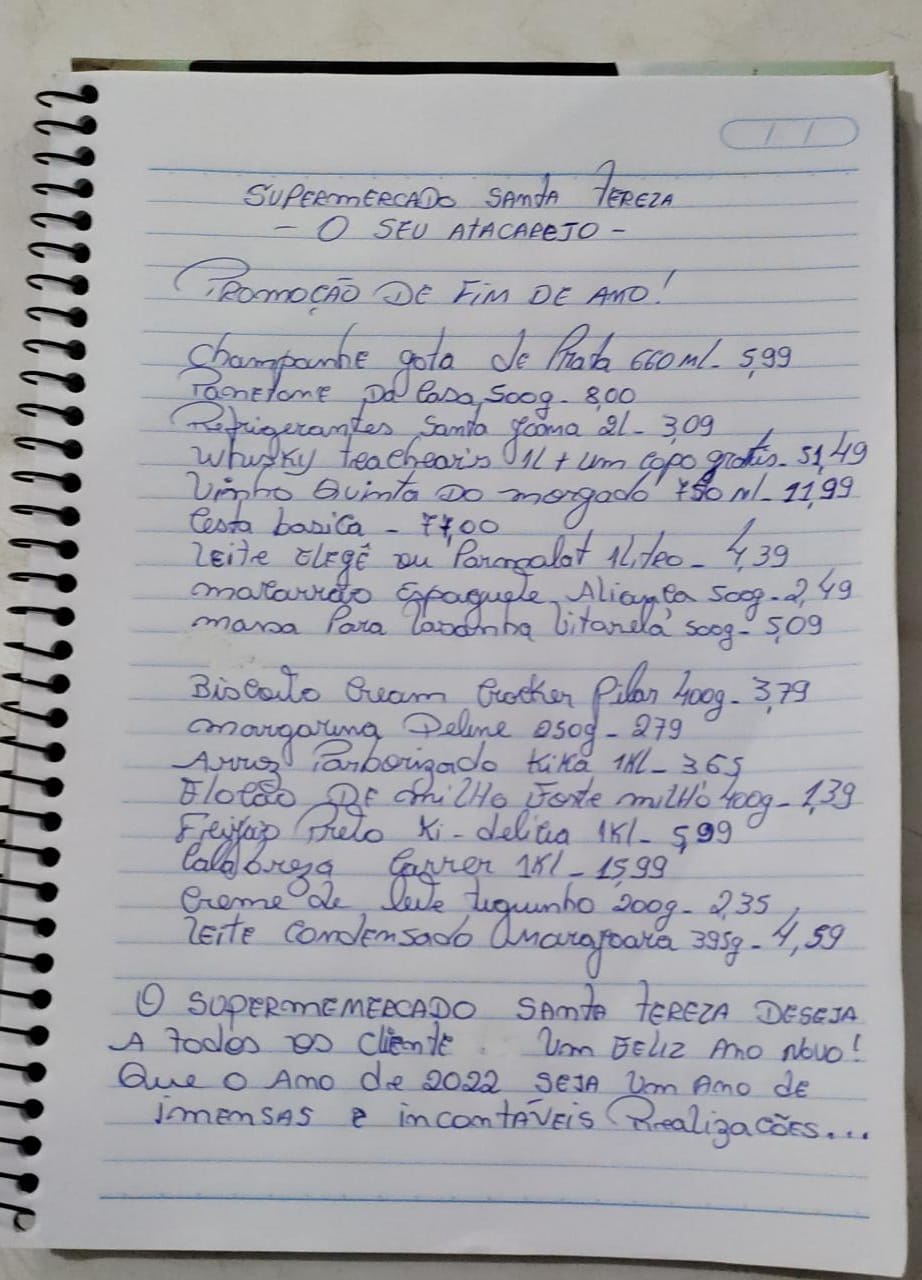 SUPERMERCADO SANTA TEREZA
- O SEU ATACAREJO -
PROMOÇÃO DE FIM DE ANO!
Champanhe gota de Prata 660ml - 5,99
Panetone Da Casa 500g - 8,00
Refrigerantes Santa Joana 2l - 3,09
Whusky teachear's 1L + um copo grátis - 51,49
Vinho Quinta Do morgado 750 ml - 11,99
Cesta basica - 77,00
Leite Elegê ou Parmalat 1Litro - 4,39
macarrão Espaguete Aliança 500g - 2,49
massa Para lasanha Vitarela 500g - 5,09
Biscoito Cream Crocker Pilar 400g - 3,79
margarina Deline 250g - 279
Arroz Parborizado Kika 1Kl - 365
Flocão DE milHo Forte milho 400g - 1,39
Feijão Preto Ki-delicia 1Kl - 5,99
Calabreza Carrer 1Kl - 15,99
Creme de leite 200g - 2,35
Leite Condensado Marajoara 395g - 4,59
O SUPERMEMERCADO SANTA TEREZA DESEJA
A todos os Cliente. Um FELIZ Ano Novo!
Que o Ano de 2022 SEJA Um Ano de
imENSAS e incontÁVEIS Realizações...